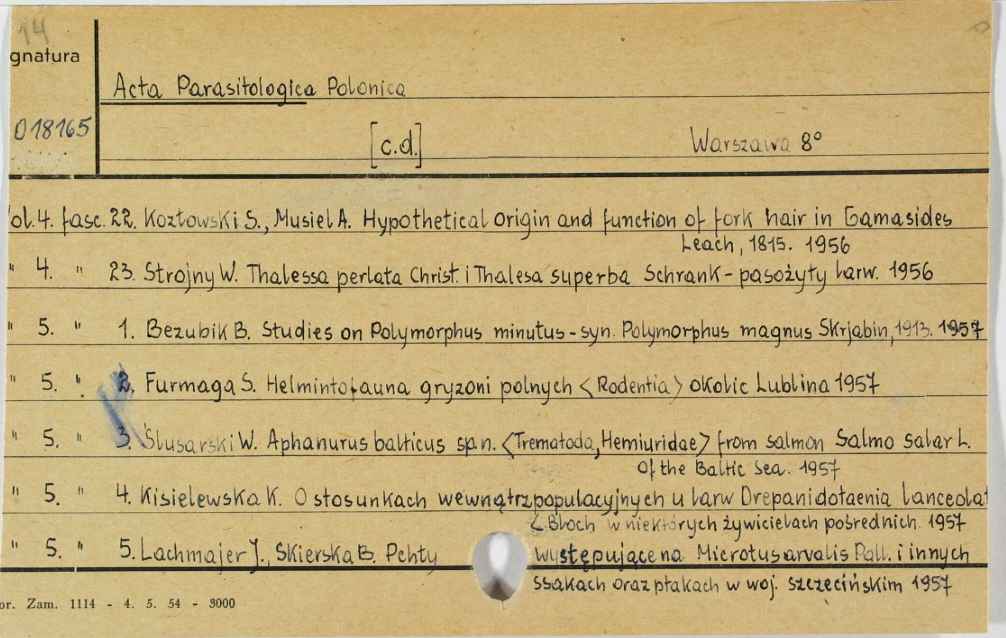 14
gnatura
Acta Parasitologica Polonica
018165
[c.d.]
Warszawa 8°
ol. 4. fasc. 22. Kozłowski S., Musiel A. Hypothetical origin and function of fork hair in Gamasides
Leach, 1815. 1956
" 4. " 23. Strojny W. Thalessa perlata Christ. i Thalesa superba Schrank - pasożyty larw. 1956
" 5. " 1. Bezubik B. Studies on Polymorphus minutus - syn. Polymorphus magnus Skrjabin, 1913. 1957
" 5. " 2. Furmaga S. Helmintofauna gryzoni polnych <Rodentia> okolic Lublina 1957
" 5. " 3. Ślusarski W. Aphanurus balticus sp.n. <Trematoda, Hemiuridae> from salmon Salmo salar L.
of the Baltic Sea. 1957
" 5. " 4. Kisielewska K. O stosunkach wewnątrzpopulacyjnych u larw Drepanidotaenia lanceolat
<Bloch w niektórych żywicielach pośrednich. 1957
" 5. " 5. Lachmajer J., Skierska B. Pchły występujące na Microtus arvalis Pall. i innych
ssakach oraz ptakach w woj. szczecińskim 1957
or. Zam. 1114 - 4. 5. 54 - 3000